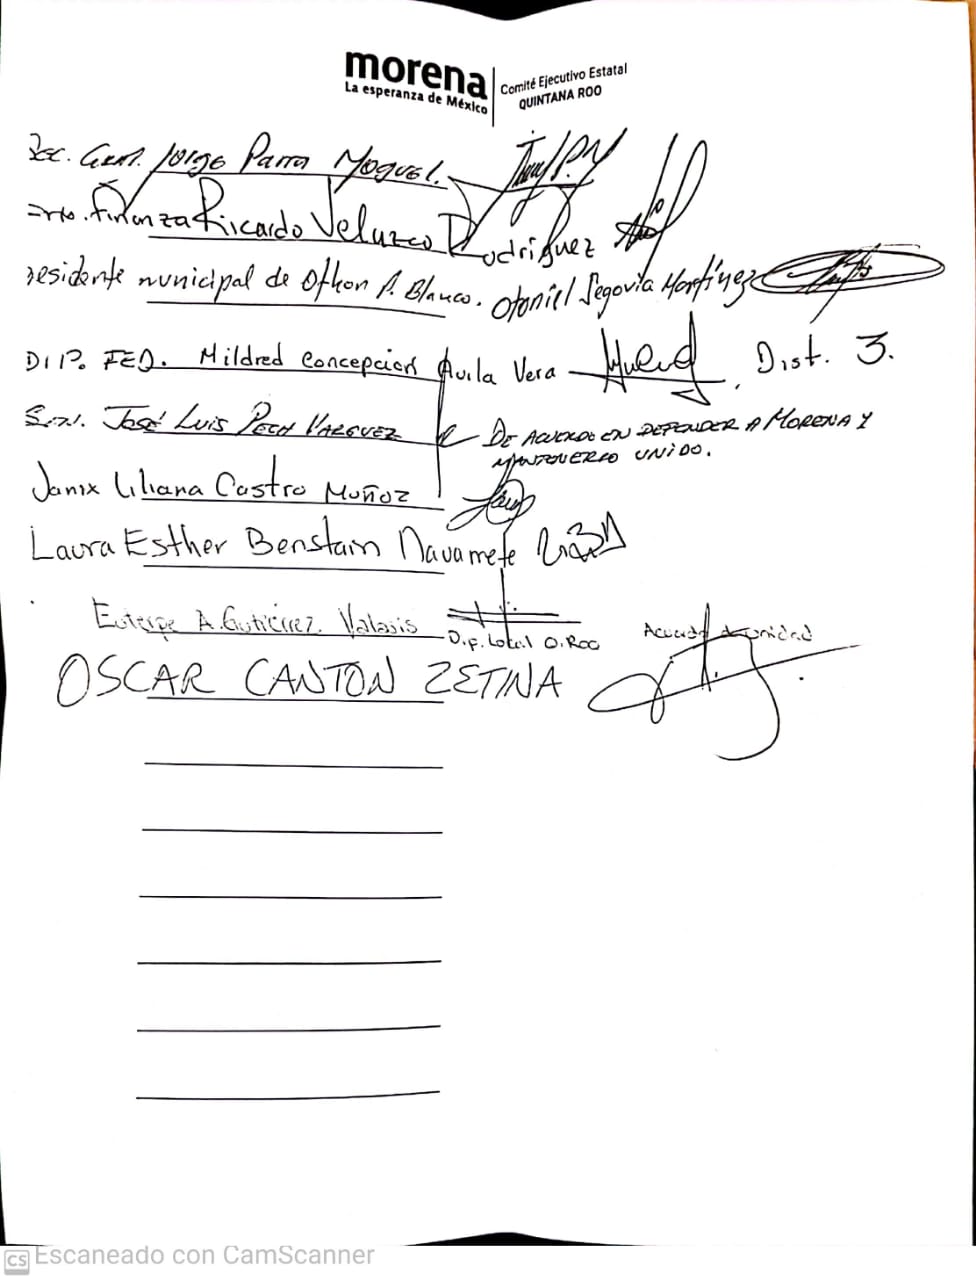 morena
La esperanza de México
Comité Ejecutivo Estatal
QUINTANA ROO
Sec. Gral. Jorge Parra Moguel.
Srio. Finanza Ricardo Velazco Rodriguez
residente municipal de Othon P. Blanco. Otoniel Segovia Martínez
DIP. FED. Mildred Concepcion Avila Vera, Dist. 3.
Sen. José Luis Pech Varguez DE ACUERDO EN DEFENDER A MORENA Y
MANTENERLO UNIDO.
Janix Liliana Castro Muñoz
Laura Esther Benstain Navarrete
Euterpe A. Gutiérrez. Valasis Dip. Local Q. Roo Acuerdo de unidad
OSCAR CANTON ZETINA
CS Escaneado con CamScanner